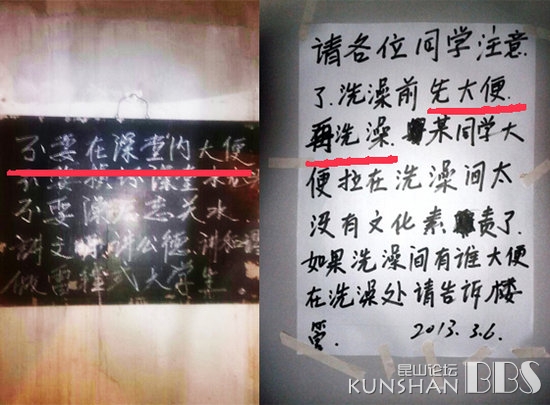 不要在澡堂内大便
不要损坏澡堂水龙头
不要澡后忘关水
讲文明讲公德讲知理
做雷锋式大学生
请各位同学注意
了.洗澡前先大便.
再洗澡.某同学大
便拉在洗澡间太
没有文化素责了.
如果洗澡间有谁大便
在洗澡处请告诉楼
管. 2013.3.6.
昆山论坛
KUNSHAN BBS